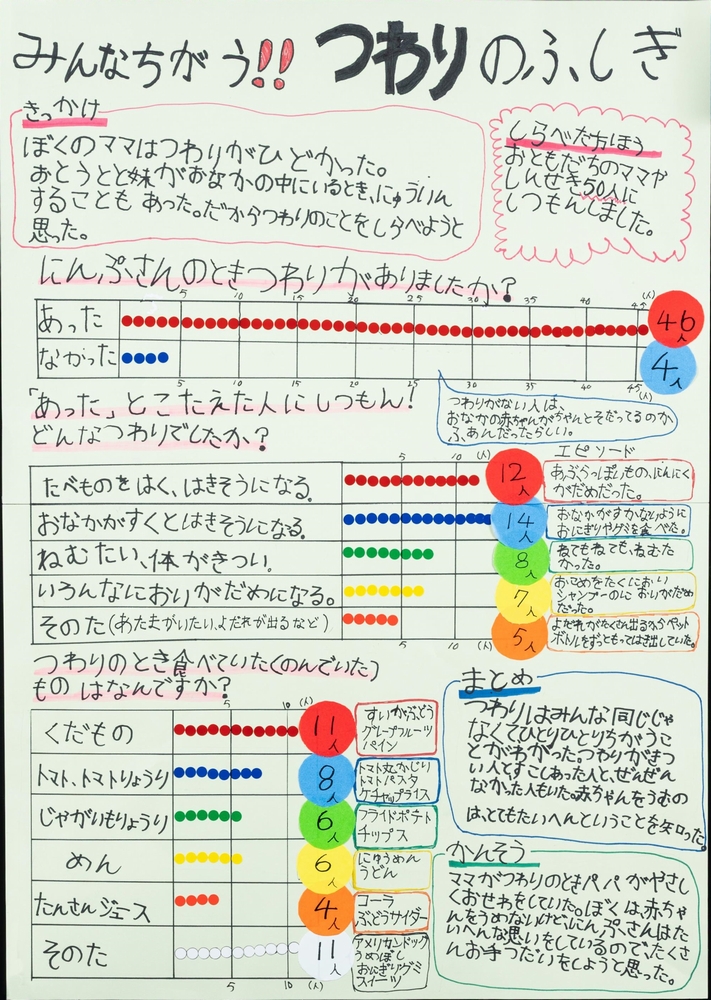 みんなちがう!! つわりのふしぎ
きっかけ
ぼくのママはつわりがひどかった。
おとうとと妹がおなかの中にいるとき、にゅういん
することも あった。だからつわりのことをしらべようと
思った。
しらべた方ほう
おともだちのママや
しんせき50人に
しつもんしました。
にんぷさんのときつわりがありましたか?
5 10 15 20 25 30 35 40 45 (人)
あった 46人
なかった 4人
5 10 15 20 25 30 35 40 45 (人)
つわりがない人は、
おなかの赤ちゃんがちゃんとそだってるのか
ふあんだったらしい。
「あった」とこたえた人にしつもん!
どんなつわりでしたか?
5 10 (人)
エピソード
たべものをはく、はきそうになる。 12人
あぶらっぽいもの、にんにく
がだめだった。
おなかがすくとはきそうになる。 14人
おなかがすかないように
おにぎりやグミを食べた。
ねむたい、体がきつい。 8人
ねてもねても、ねむた
かった。
いろんなにおいがだめになる。 7人
おこめをたくにおい
シャンプーのにおいがだめ
だった。
そのた(あたまがいたい、よだれが出るなど) 5人
よだれがたくさん出るからペット
ボトルをずっともってはき出していた。
5 10 (人)
つわりのとき食べていた(のんでいた)
ものはなんですか?
5 10 (人)
くだもの 11人
すいか、ぶどう
グレープフルーツ
パイン
トマト、トマトりょうり 8人
トマト丸かじり
トマトパスタ
ケチャップライス
じゃがいもりょうり 6人
フライドポテト
チップス
めん 6人
にゅうめん
うどん
たんさんジュース 4人
コーラ
ぶどうサイダー
そのた 11人
アメリカンドック
うめぼし
おにぎり グミ
スイーツ
5 10 (人)
まとめ
つわりはみんな同じじゃ
なくてひとりひとりちがうこ
とがわかった。つわりがきつ
い人とすこしあった人と、ぜんぜん
なかった人もいた。赤ちゃんをうむの
は、とてもたいへんということを知った。
かんそう
ママがつわりのときパパがやさし
くおせわをしていた。ぼくは、赤ちゃ
んをうめないけど、にんぷさんはた
いへんな思いをしているので、たくさ
んお手つだいをしようと思った。